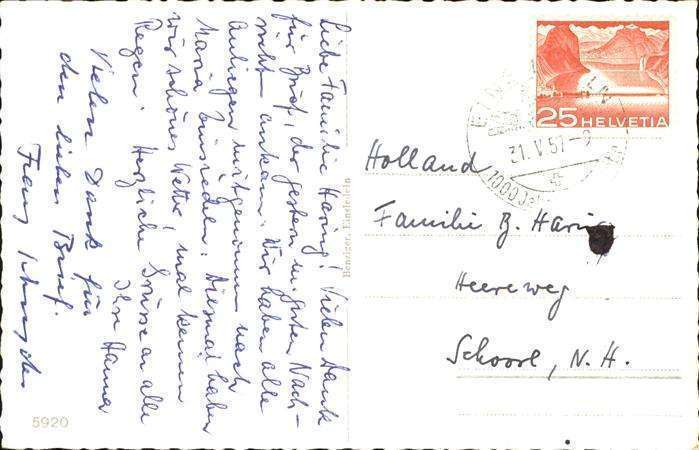 Liebe Familie Haring! Vielen Dank
für Brief, der gestern m. guten Nach-
richt ankam. Wir haben alle
Anliegen mitgenommen nach
Maria Einsiedeln. Diesmal haben
wir schönes Wetter, mal keinen
Regen. Herzliche Grüsse an alle
Ihre Hanna
Vielen Dank für
den lieben Brief.
Franz
5920
Benziger, Einsiedeln
25 HELVETIA
31.V.57-9
1000 Ja
Holland
Familie B. Haring
Heereweg
Schoorl, N.H.